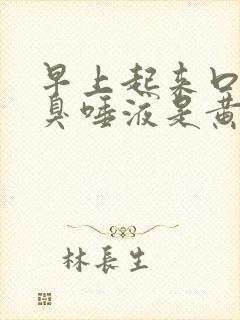 早上起来口
臭唾液是黄
林長生